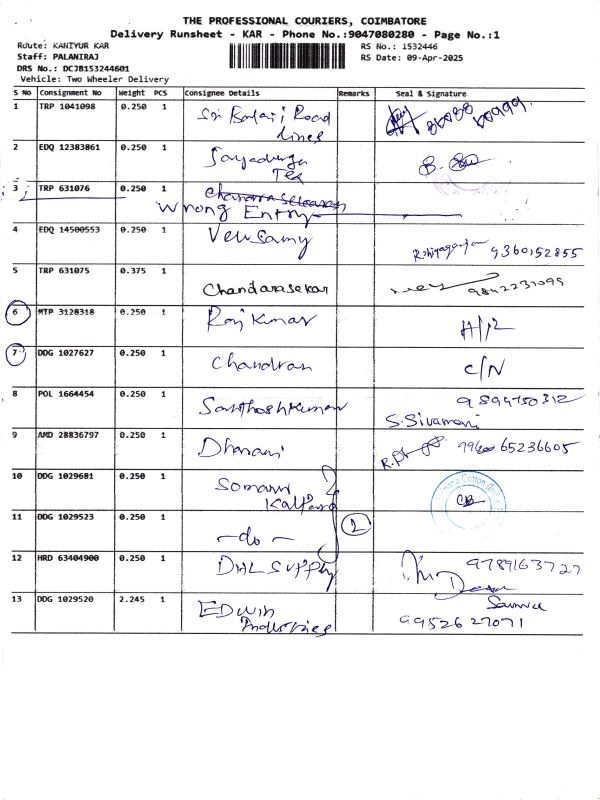 THE PROFESSIONAL COURIERS, COIMBATORE
Delivery Runsheet - KAR - Phone No.:9047080280 - Page No.:1
Route: KANIYUR KAR RS No.: 1532446
Staff: PALANIRAJ RS Date: 09-Apr-2025
DRS No.: DCJB153244601
Vehicle: Two Wheeler Delivery
S No Consignment No Weight PCS Consignee Details Remarks Seal & Signature
1 TRP 1041098 0.250 1 Sri Balaji Road
Lines
2 EDQ 12383861 0.250 1 Jayadurga
Tex
3 TRP 631076 0.250 1
Wrong Entry
4 EDQ 14500553 0.250 1 Venusamy 9360152855
5 TRP 631075 0.375 1 Chandarasekar 9842231099
6 MTP 3128318 0.250 1 Raj Kumar H/R
7 DDG 1027627 0.250 1 Chandran C/N
8 POL 1664454 0.250 1 Santhosh Kumar 9894750312
S. Sivamani
9 AMD 28836797 0.250 1 Dharani 65236605
10 DDG 1029681 0.250 1 Somanur
Cotton
11 DDG 1029523 0.250 1 -do- 2
12 HRD 63404900 0.250 1 DHL Supply 9789163727
13 DDG 1029520 2.245 1 Edwin
Industries
9952627071